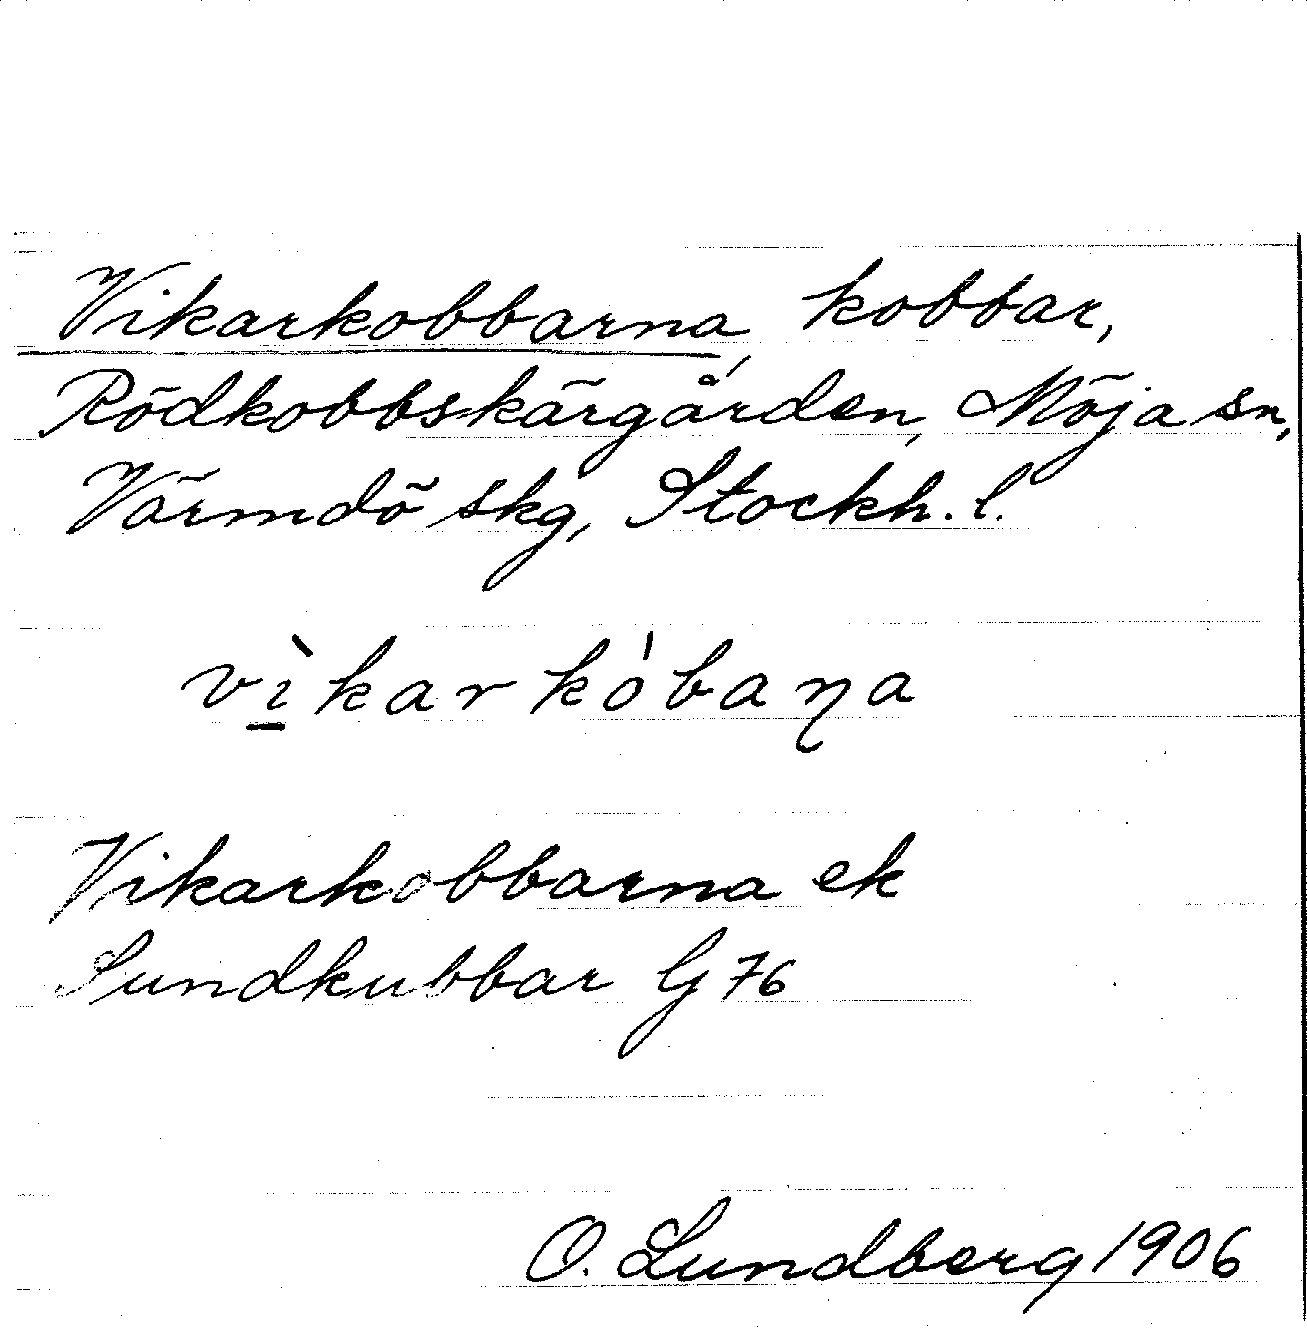 Vikarkobbarna, kobbar,
Rödkobbskärgården, Möja sn,
Värmdö skg, Stockh. l.
vìkarkóbaɳa
Vikarkobbarna ek
Sundkubbar G 76
O. Lundberg 1906